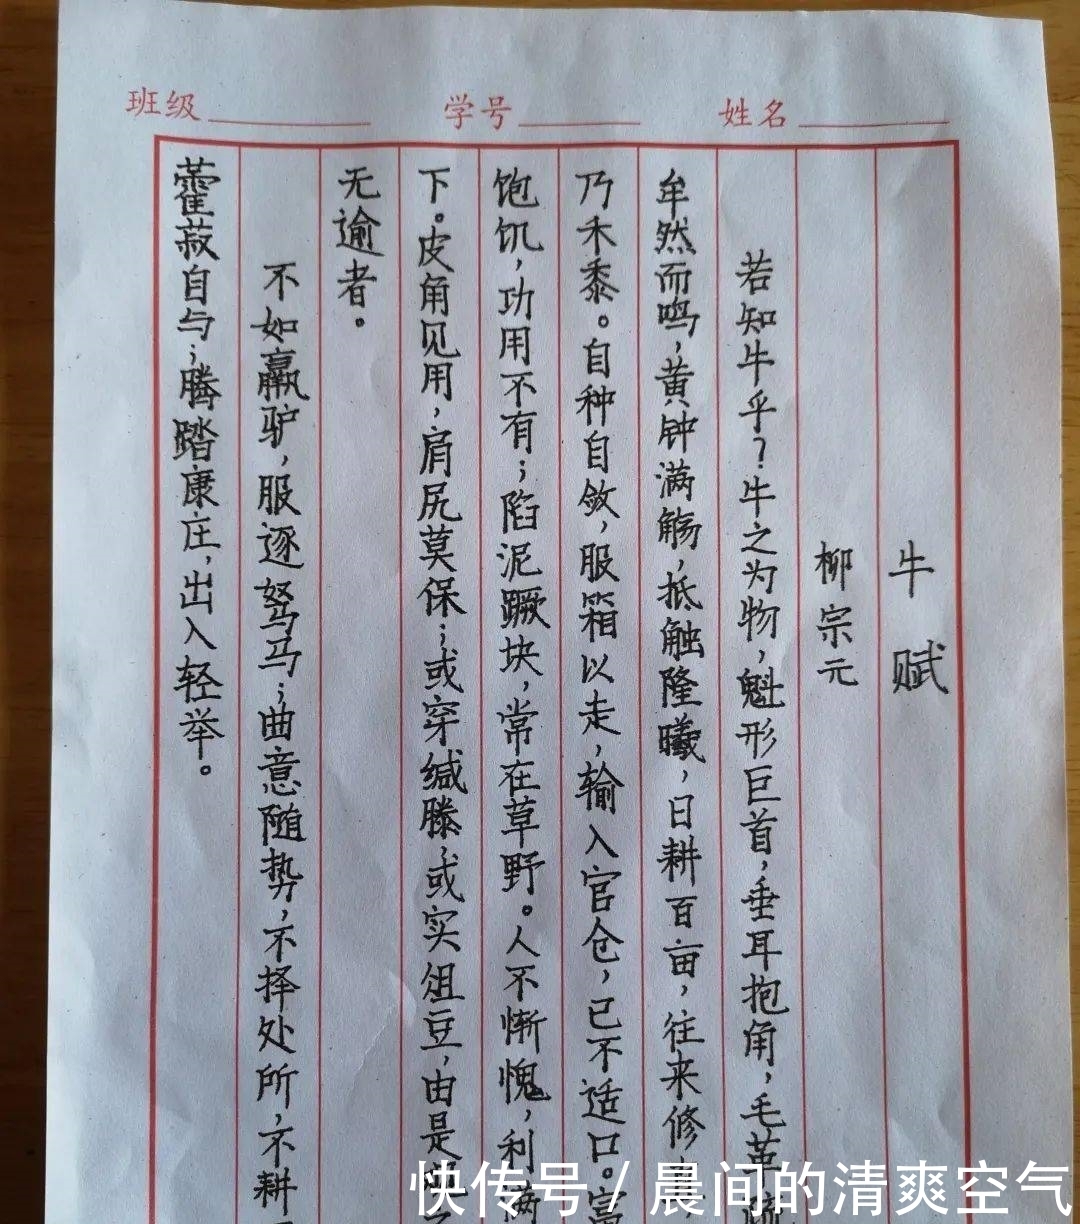 班级 学号 姓名
牛赋
柳宗元
若知牛乎？牛之为物，魁形巨首，垂耳抱角，毛革
牟然而鸣，黄钟满觞，抵触隆曦，日耕百亩，往来修
乃禾黍。自种自敛，服箱以走，输入官仓，已不适口。富
饱饥，功用不有；陷泥蹶块，常在草野。人不惭愧，利满
下。皮角见用，肩尻莫保；或穿缄滕，或实俎豆，由是
无逾者。
不如羸驴，服逐驽马；曲意随势，不择处所，不耕
藿菽自与；腾踏康庄，出入轻举。
快传号 / 晨间的清爽空气